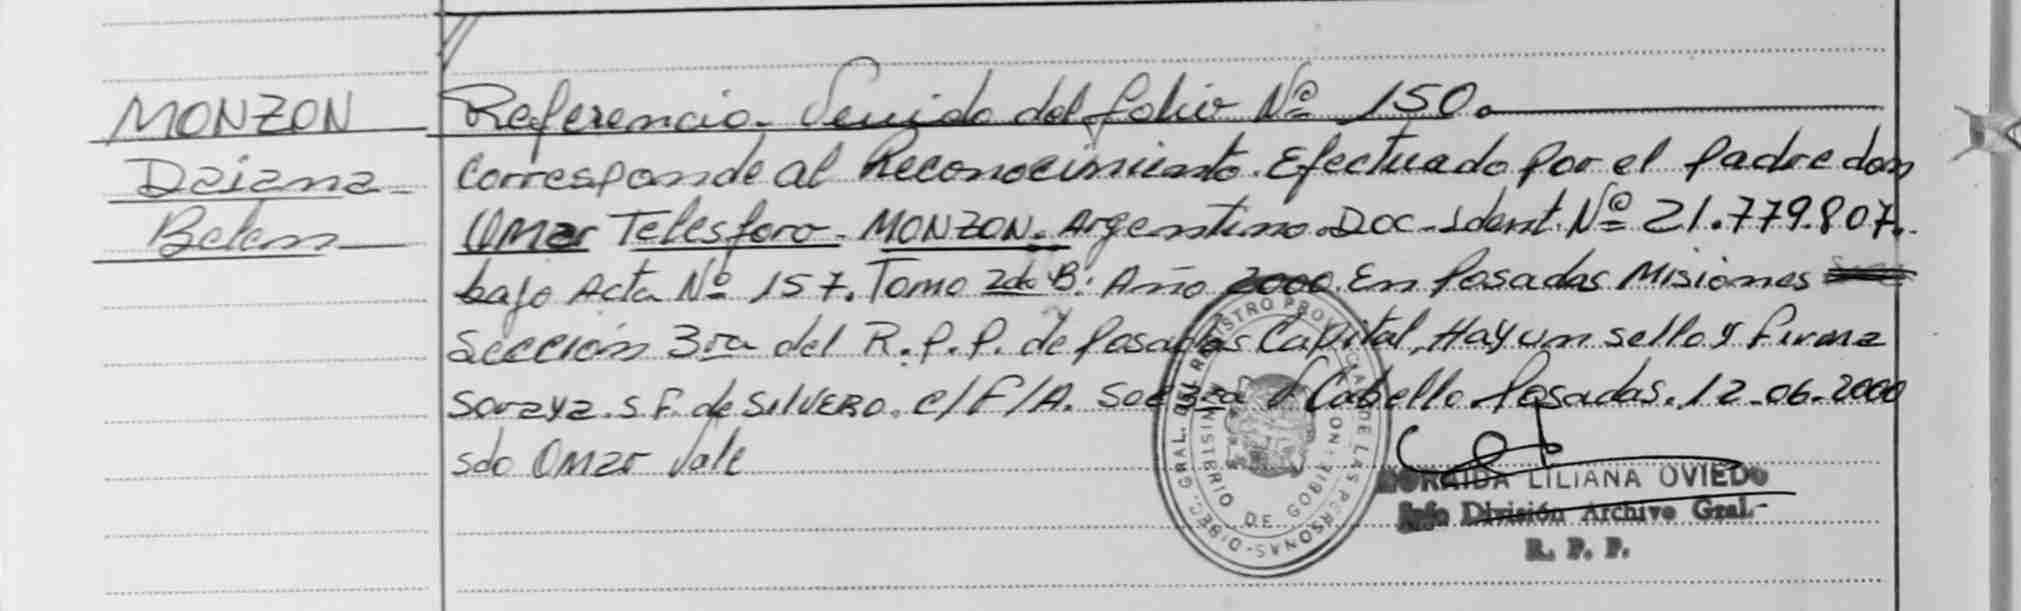 MONZON
Daiana
Belem
Referencia. Venido del folio Nº 150.
Corresponde al Reconocimiento. Efectuado por el padre don
Omar Telesforo - MONZON. Argentino. Doc - Ident. Nº 21.779.807.
bajo Acta Nº 157. Tomo 2do B: Año 2000. En Posadas Misiones
Sección 3ra del R.P.P. de Posadas Capital, Hay un sello y firma
Soraya. S F. de SILVERO. C/F/A. Cabello. Posadas. 12-06-2000
sdo Omar Vale
LILIANA OVIEDO
Jefe División Archivo Gral.-
R. P. P.
DIREC. GRAL. DEL REGISTRO PROVINCIAL DE LAS PERSONAS
MINISTERIO DE GOBIERNO